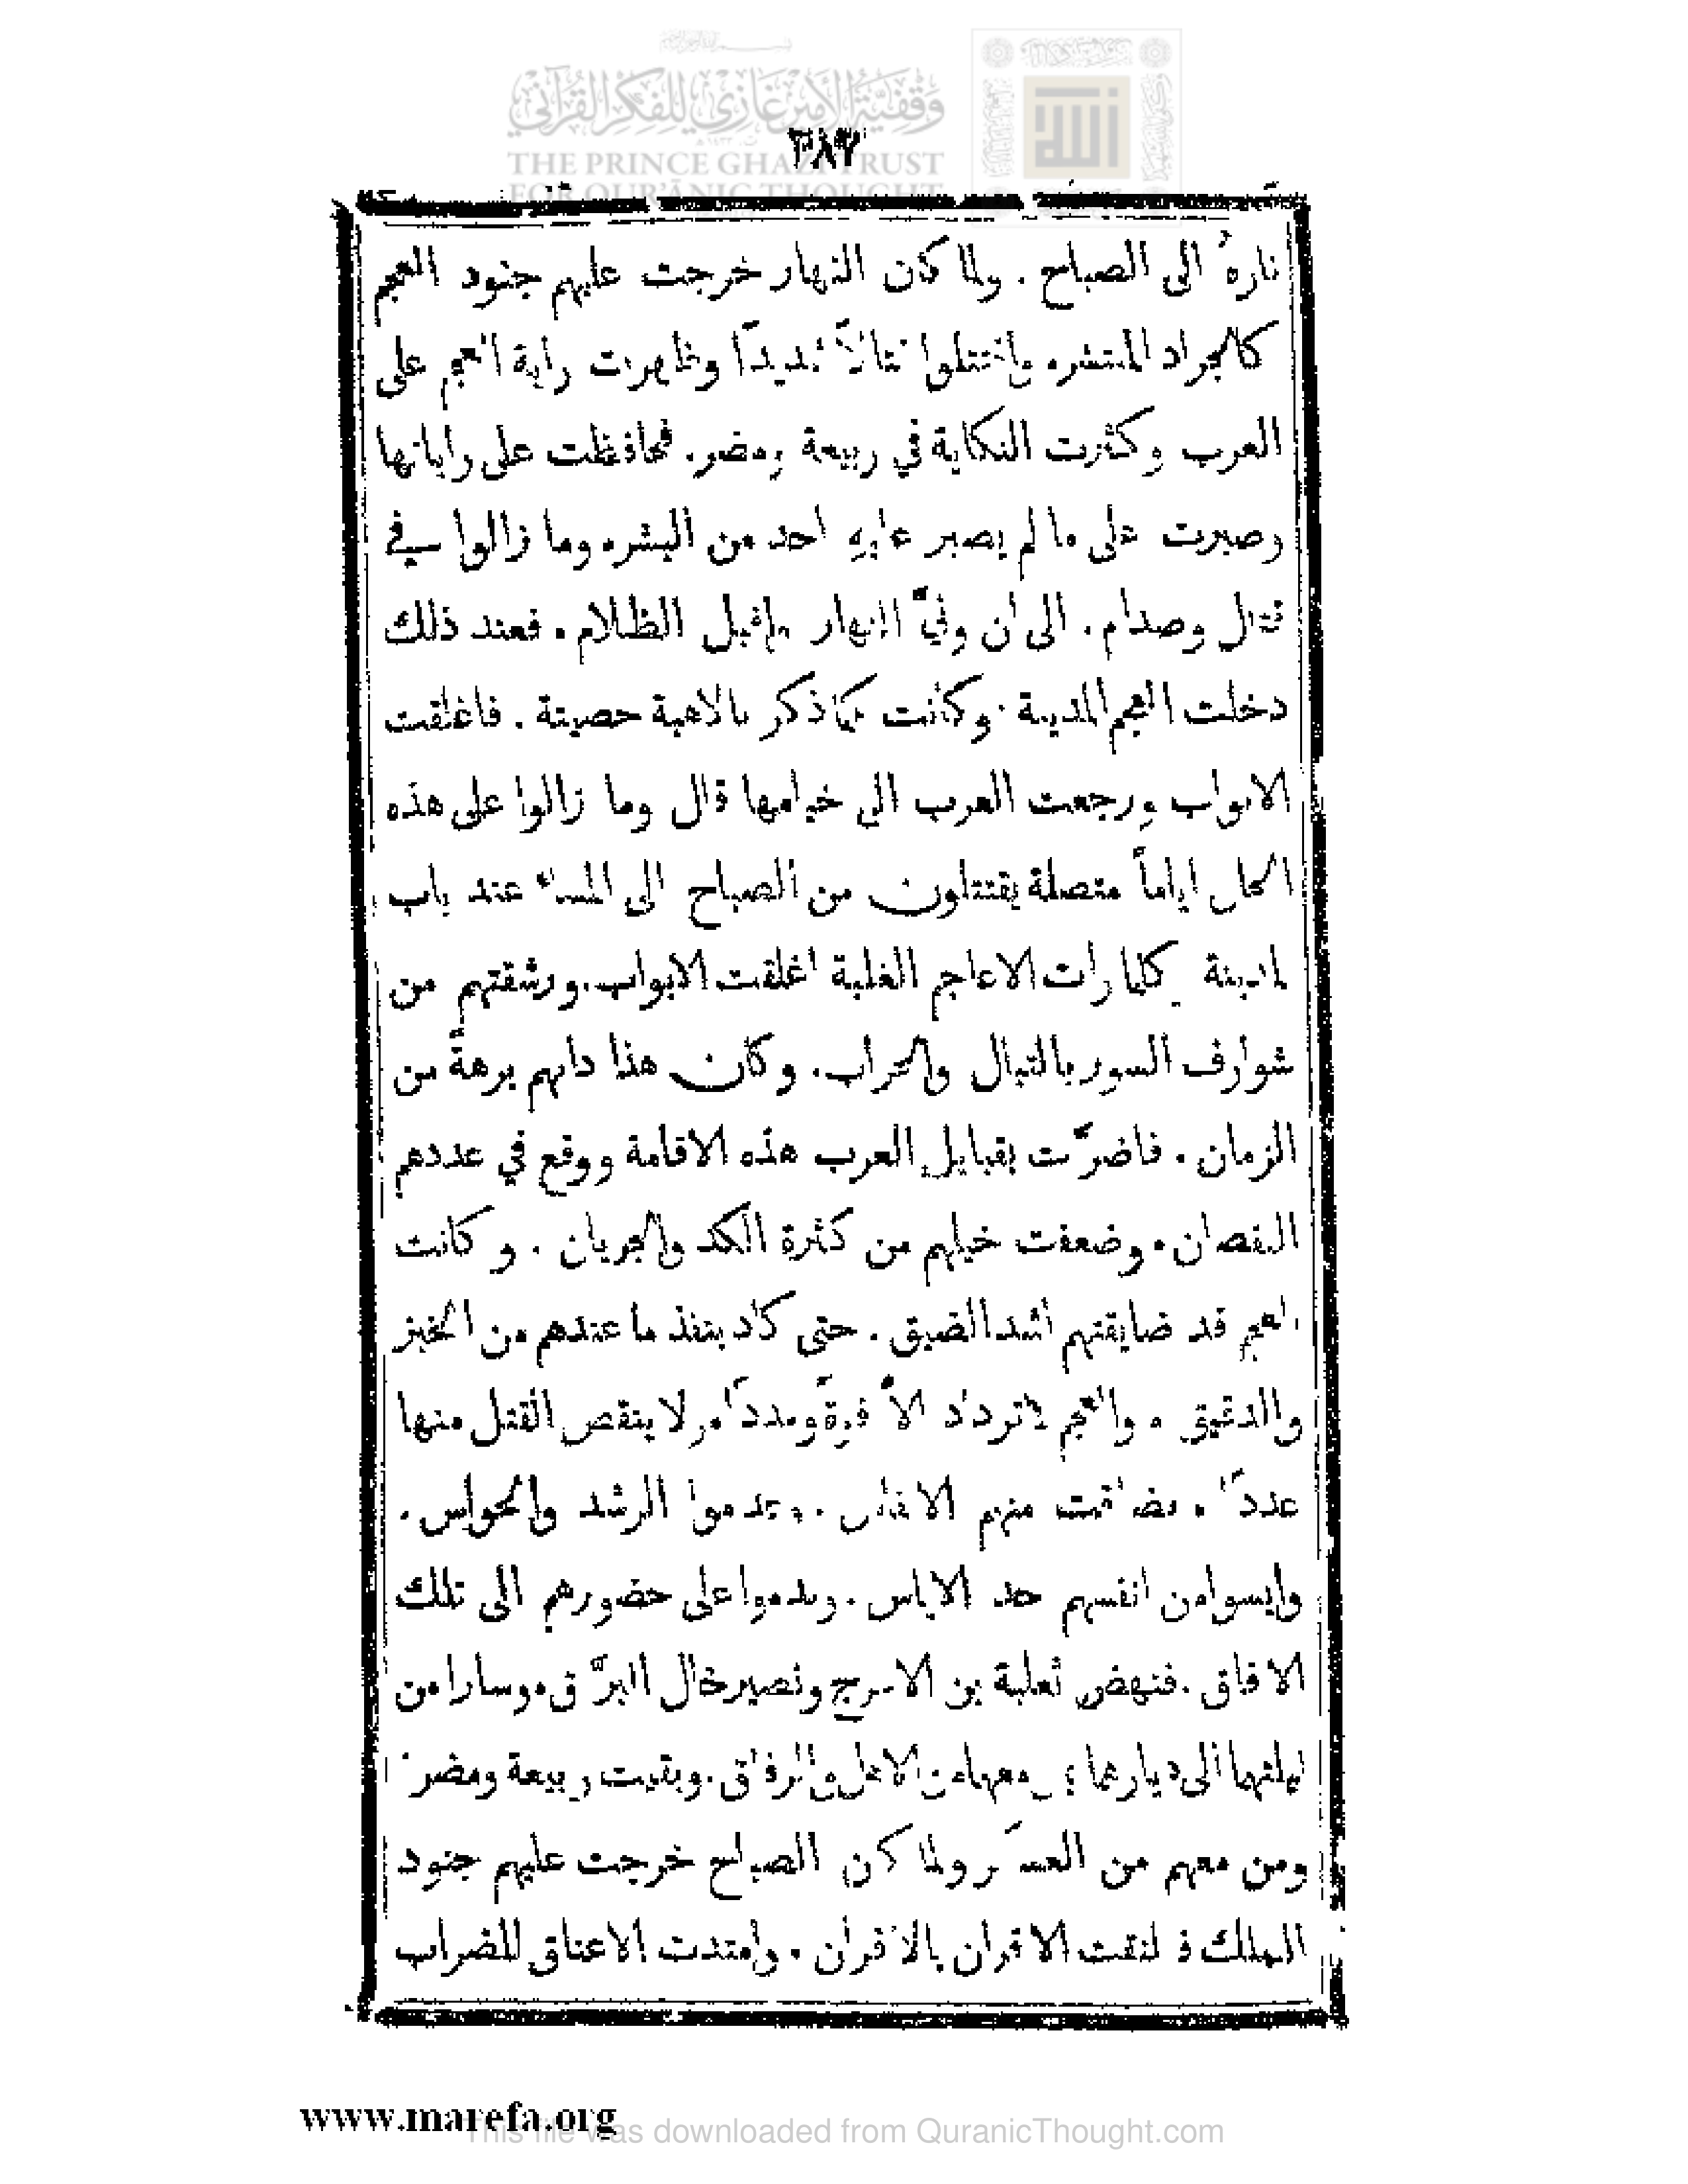 وقفية الأمير غازي للفكر القرآني
THE PRINCE GHAZI TRUST
FOR QUR'ĀNIC THOUGHT
ناره الى الصباح . ولما كان النهار خرجت عليهم جنود العجم
كالجراد المنتشر. واقتتلوا قتالاً شديداً وظهرت راية العجم على
العرب وكثرت النكاية في ربيعة ومضر. فحافظت على راياتها
وصبرت على ما لم يصبر عليه احد من البشر. وما زالوا في
قتال وصدام . الى ان ولىّ النهار واقبل الظلام . فعند ذلك
دخلت العجم المدينة . وكانت كما ذكر بالاهبة حصينة . فاغلقت
الابواب ورجعت العرب الى خيامها قال وما زالوا على هذه
الحال اياماً متصلة يقتتلون من الصباح الى المساء عند باب
المدينة كلما رات الاعاجم الغلبة اغلقت الابواب . ورشقتهم من
شوارف السور بالنبال والحراب . وكان هذا دابهم برهةً من
الزمان . فاضرَّت بقبايل العرب هذه الاقامة ووقع في عددهم
النقصان . وضعفت خيلهم من كثرة الكد والجريان . وكانت
العجم قد ضايقتهم اشد الضيق . حتى كاد ينفذ ما عندهم من الخبز
والدقيق . والعجم لا تزداد الاَّ قوةً ومدداً . ولا ينقص القتل منها
عدداً . فضاقت منهم الانفاس . وعدموا الرشد والحواس .
وايسوا من انفسهم حد الاياس . وندموا على حضورهم الى تلك
الافاق . فنهض ثعلبة بن الاعرج ونصير خال البرَّاق . وسارا من
ليلتهما الى ديارهما بمن معهما من الاهل والرفاق . وبقيت ربيعة ومضر
ومن معهم من العسكر ولما كان الصباح خرجت عليهم جنود
الملك فالتقت الاقران بالاقران . وامتدت الاعناق للضراب
www.marefa.org
This file was downloaded from QuranicThought.com